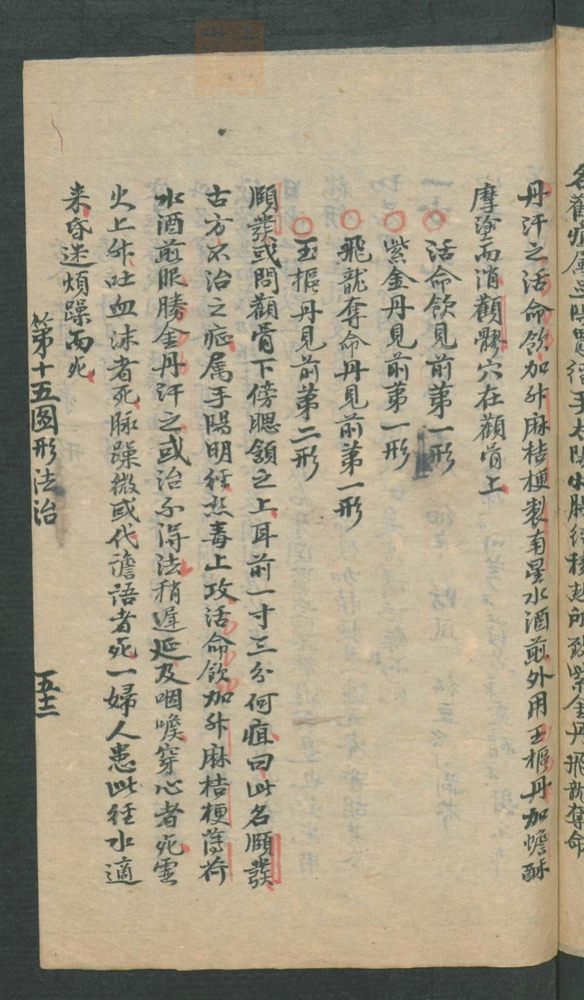 名顴疽屬足陽胃經手太陽小腸經積熱所致紫金丹飛龍奪命
丹汗之活命飲加升麻桔梗製南星水酒煎外用玉樞丹加蟾酥
摩塗而消顴髎穴在顴骨上
○活命飲見前第一形
○紫金丹見前第一形
○飛龍奪命丹見前第一形
○玉樞丹見前第二形
頤發或問顴骨下傍腮頷之上耳前一寸三分何疽曰此名頤發
古方不治之症属手陽明徑熱毒上攻活命飲加升麻桔梗薄荷
水酒煎服勝金丹汗之或治不得法稍遲延及咽喉穿心者死虛
火上升吐血沫者死脉躁微或代譫語者死一婦人患此徑水適
来昏迷煩躁而死
第十五圖形法治
五十二